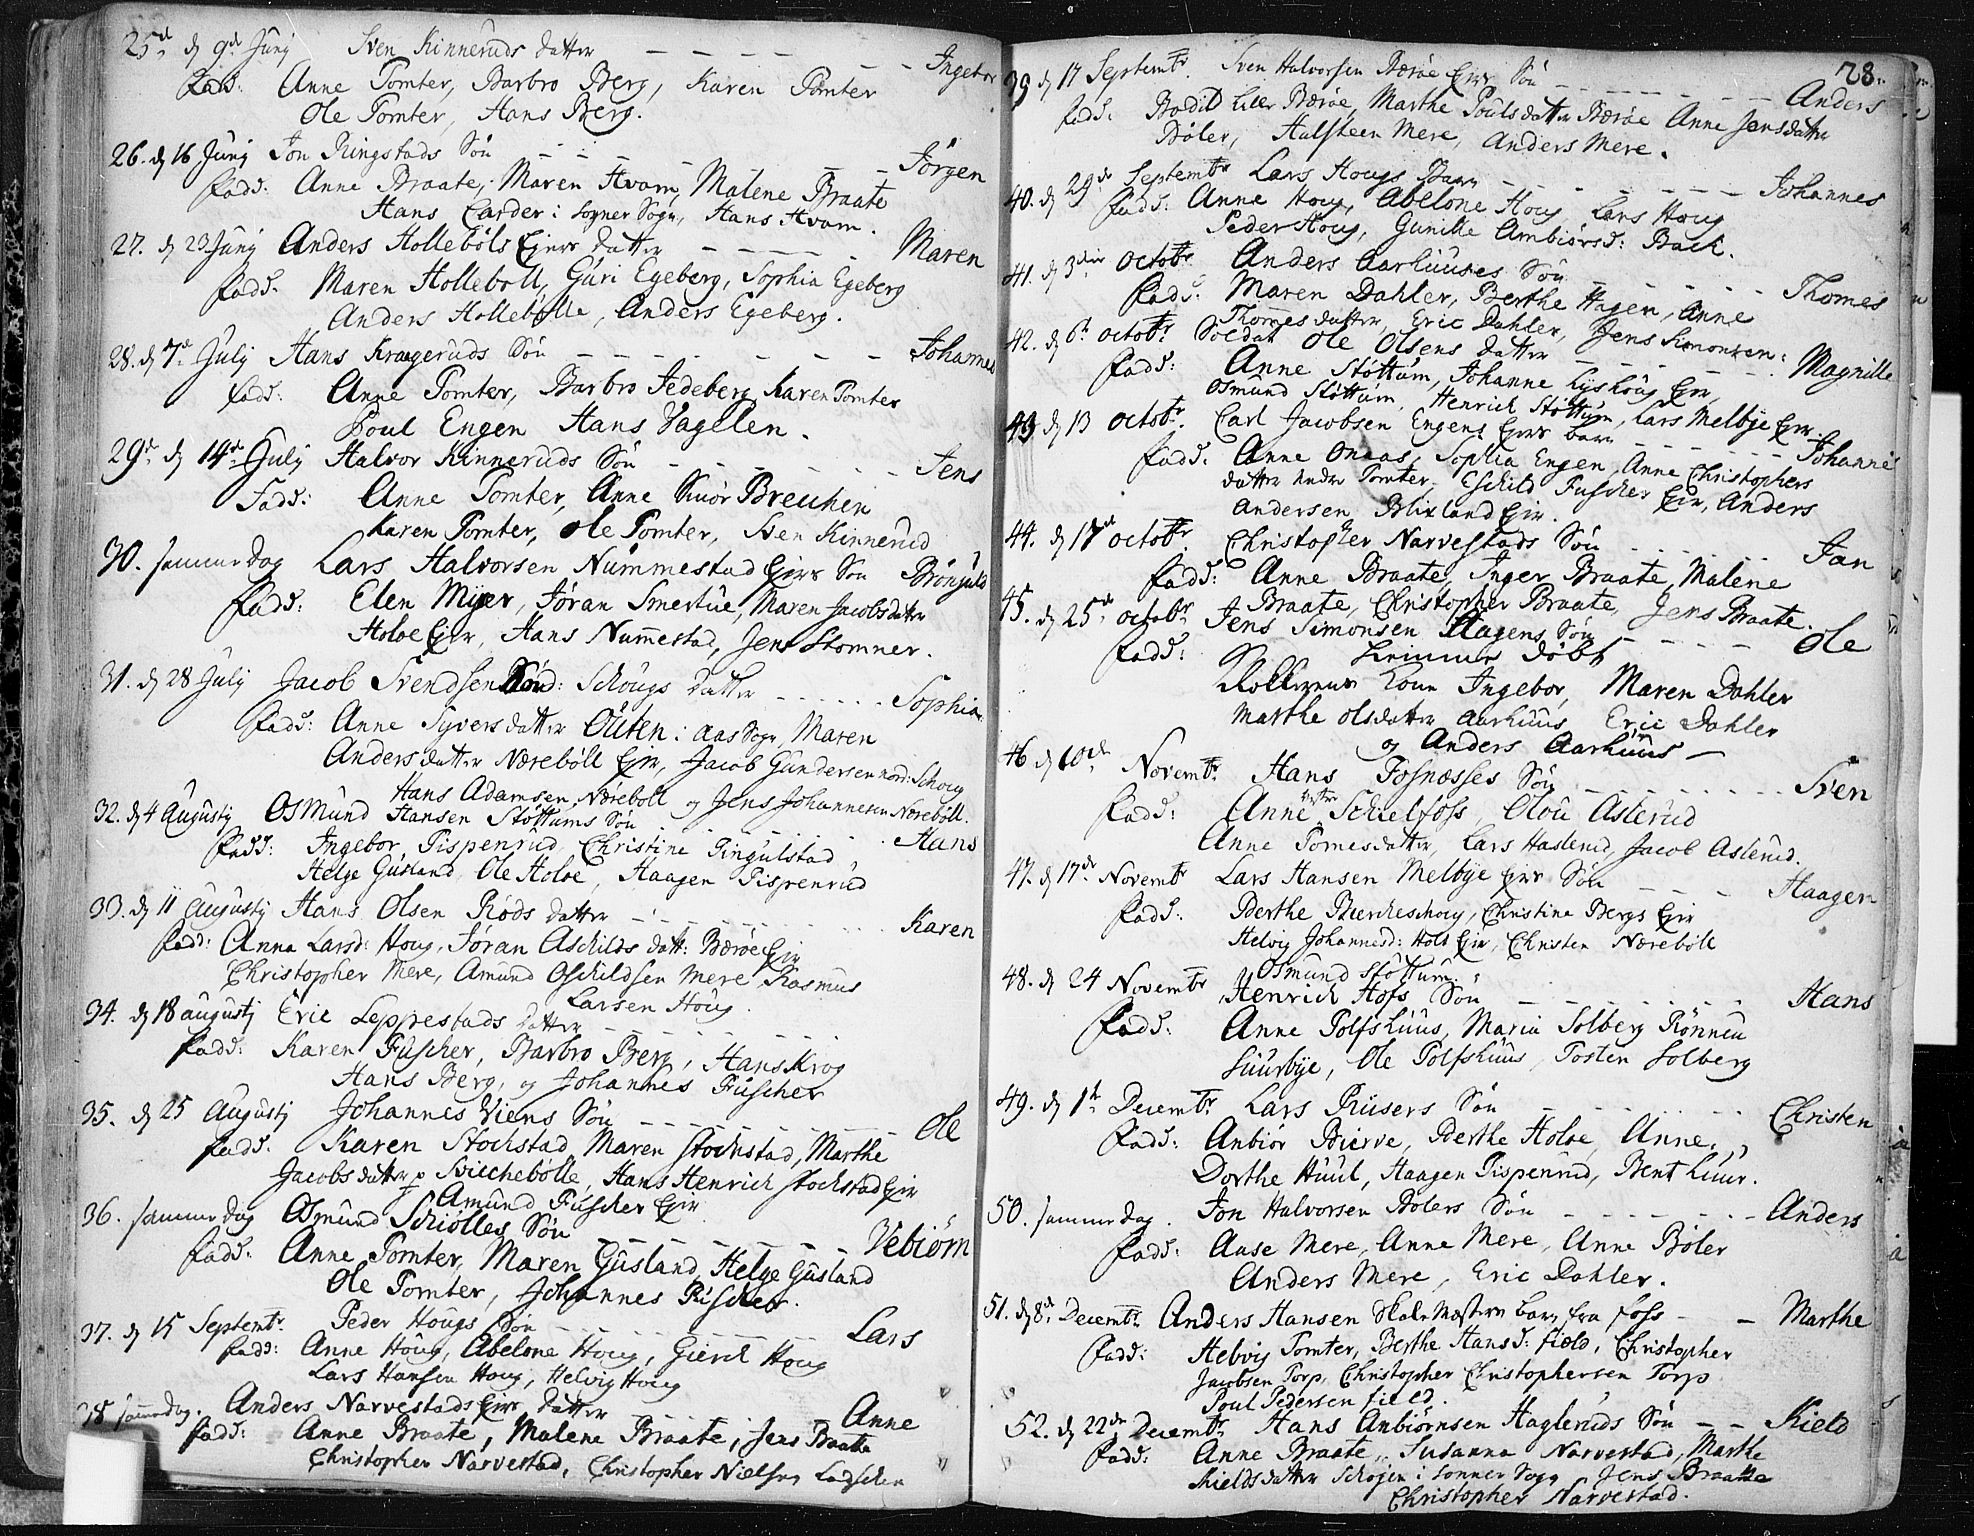 25d. d 9d Junÿ Sven Kinneruds datter — — — — — Ingebor
Fad: Anne Tomter, Barbro Berg, Karen Tomter
Ole Tomter, Hans Berg.
26. d 16 Junÿ Jon Ringstads Søn — — — — — Jørgen
Fadd: Anne Braate, Maren Hvam, Malene Braate
Hans Carder i Sogner Sogn, Hans Hvam.
27. d 23 Junÿ Anders Hollebøls Eier datter — — — — Maren
Fadd: Maren Holleboll, Guri Egeberg, Sophia Egeberg
Anders Hollebølle, Anders Egeberg.
28. d 7d Julÿ Hans Krageruds Søn — — — — — Johannes
Fadd: Anne Tomter, Barbro Jedeberg Karen Tomter
Poul Engen Hans Vagelen.
29d d 14d Julÿ Halvor Kinneruds Søn — — — — — Jens
Fadd: Anne Tomter, Anne Snor Breuhen
Karen Tomter, Ole Tomter, Sven Kinnerud
30. samme dag Lars Halvorsen Nummestad Eier Søn Brönjuld
Fadd: Elen Myer, Jøran Smertue, Maren Jacobsdatter
Holøe Eier, Hans Numestad, Jens Stomner.
31. d 28 Julÿ Jacob Svendsen Skougs datter — — — Sophia
Fadd: Anne Syversdatter Outen i Aas Sogn, Maren
Andersdatter Nærebøll Eier, Jacob Gundersen nord: Schoug
Hans Adamsen Nærebøll og Jens Johannesen Nærebøll.
32. d 4 Augustÿ Osmund Hansen Støttums Søn — — — Hans
Fadd: Ingebor Tispenrud, Christine Tingulstad,
Helge Gusland, Ole Holøe, Haagen Tispenrud
33. d 11 Augustÿ Hans Olsen Røds datter — — — — Karen
Fad: Anna Larsd: Houg, Jøran Aschilds datt: Bærøe Eier
Christopher Mere, Amund Oschildsen Mere, Rasmus
Larsen Houg.
34. d 18 augustj Eric Leppestads datter — — — —
Fadd: Karen Fuscher, Barbro Berg, Hans Krog
Hans Berg, og Johannes Fuscher
35. d 25 Augustj Johannes Viens Søn — — — — — Ole
Fadd. Karen Stochstad, Maren Stochstad, Marthe
Jacobsdatter p Sviechebølle, Hans Henrich Stochstad Eier
Amund Fuscher Eier
36. samme dag Osmund Schiølles Søn — — — — Vebiørn
Fadd. Anne Tomter, Maren Gusland, Helge Gusland
Ole Tomter, Johannes Fuscher.
37. d 15 Septemtr. Peder Hougs Søn — — — — — Lars
Fadd: Anne Houg, Abelone Houg, Gierd Houg
Lars Hansen Houg, Helvig Houg
38 samedag. Anders Narvestads Eier datter — — — Anne
Fadd: Anne Braate, Malene Braate, Jens Braate
Christopher Narvestad, Christopher Nielsen
28.
39 d 17 Septemtr. Sven Halvorsen Bærøe Eier Søn — — — — Anders
Fadd: Bodil Lille Bærøe, Marthe Poulsdatter Bærøe Anne Jensdatter
Bøler, Halsteen Mere, Anders Mere.
40. d 29de Septemtr Lars Hougs Barn — — — — Johannes
Fadd: Anne Houg, Abelone Houg, Lars Houg
Peder Houg, Gunille Ambiørsd: Bach.
41. d 3die Octobr Anders Aarhuuses Søn — — — — Thomes
Fadd: Maren Dahler, Berthe Hagen, Anne
Thomesdatter, Eric Dahler, Jens Simonsen:
42. d 6te octobr Soldat Ole Olsens datter — — — — Magnille
Fadd: Anne Støttum, Johanne Lyshoug Eier,
Osmund Støttum, Henrich Støttum, Lars Melbye Eier.
43 d 13 Octobr. Carl Jacobsen Engens Eiers barn — — — — Johannes
Fadd. Anne Onaas, Sophia Engen, Anne Christophers
datter nedre Tomter, Eschild Fuscher Eier, Anders
Andersen Blixland Eier.
44. d 17d octobr Christopher Narvestads Søn — — — — Jan
Fadd: Anne Braate, Inger Braate, Malene
Braate, Christopher Braate, Jens Braate.
45. d 25d octobr Jens Simonsen Hagens Søn — — — — Ole
Fadd: hiemme døbt
Ingebor, Maren Dahler
Marthe Olsdatter Aarhuus, Eric Dahler
og Anders Aarhuus —
46 d 10de Novemtr. Hans Fosnæsses Søn — — — — Sven
Fadd: Anne Schielfoss, Olou Aslerud
Anne Tomesdatter, Lars Haslerud, Jacob Aslerud.
47. d 17de Novemtr Lars Hansen Melbye Eier Søn — — — Haagen
Fadd. Berthe Bierkeschoug, Christine Bergs Eier
Helvig Johannesd: Hold Eier, Christen Nærebøll
Osmund Støttum.
48. d 24 Novemtr Henrich Hofs Søn — — — — Hans
Fadd: Anne Tolfshuus, Maria Solberg Rönneu
Huurbye, Ole Tolfshuus, Tosten Solberg
49. d 1te Decemtr. Lars Rusers Søn — — — — Christen
Fadd: Anbiør Bierve, Berthe Holøe, Anne,
Dorthe Huul, Haagen Tispenrud, Bent Huur.
50. samme dag. Jon Halvorsen Bolers Søn — — — — Anders
Fadd: Aase Mere, Anne Mere, Anne Bøler
Anders Mere, Eric Dahler.
51. d 8de Decemtr. Anders Hansen Skolemesters barn fra Foss — — Marthe
Fadd: Helvig Tomter, Berthe Hansd: Field, Christopher
Jacobsen Torp, Christopher Christophersen Torp
Poul Pedersen Field.
52. d 22de Decemtr Hans Anbiørnsen Hagleruds Søn — — Kield
Fadd: Anne Braate, Susanna Narvestad, Marthe
Kieldsdatter Schogen i Sonner Sogn Jens Braate
Christopher Narvestad.